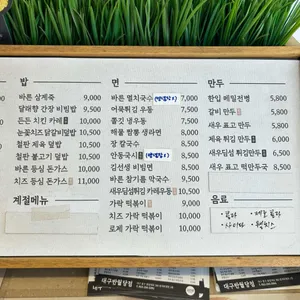 밥
바른 삼계죽 9,000
달래향 간장 비빔밥 9,500
든든 치킨 카레 10,000
눈꽃치즈 닭갈비덮밥 10,500
철판 제육 덮밥 10,500
철판 불고기 덮밥 10,500
바른 등심 돈가스 11,000
치즈 등심 돈가스 11,500
계절메뉴
면
바른 멸치국수 7,000
어묵튀김 우동 7,500
쫄깃 냉우동 7,500
해물 짬뽕 생라면 8,000
장 칼국수 8,500
안동국시 8,500
김선생 비빔면 8,500
바른 참기름 막국수 9,500
새우딤섬튀김 카레우동 10,500
가락 떡볶이 9,000
치즈 가락 떡볶이 10,000
로제 가락 떡볶이 10,500
만두
한입 메밀전병 5,800
갈비 만두 5,800
새우 표고 만두 5,800
제육 튀김만두 5,800
새우딤섬 튀김만두 5,800
새우 표고 떡만두국 8,500
음료
콜라
사이다
대구반월당점
대구반월당점